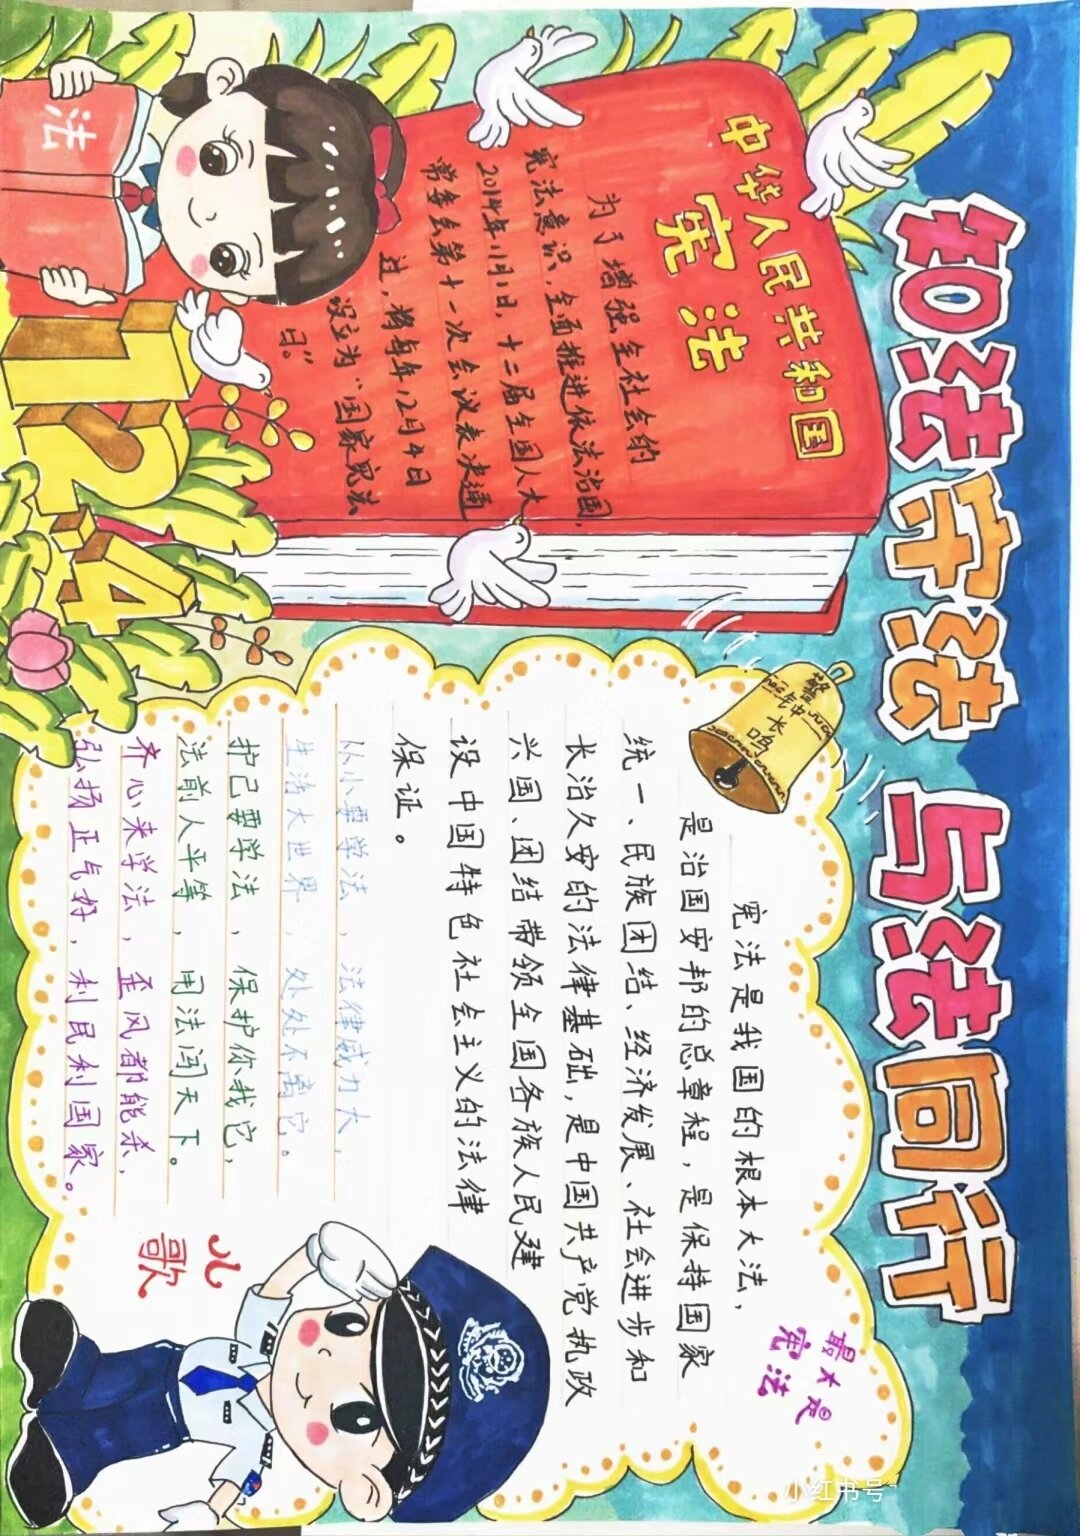 知法守法 与法同行
中华人民共和国
宪法
为了增强全社会的
宪法意识,全面推进依法治国,
2014年11月1日,十二届全国人大
常委会第十一次会议表决通
过,将每年12月4日
设立为“国家宪法
日。”
法
12·4
警钟长鸣
最大是
宪法
宪法是我国的根本大法,
是治国安邦的总章程,是保持国家
统一、民族团结、经济发展、社会进步和
长治久安的法律基础,是中国共产党执政
兴国、团结带领全国各族人民建
设中国特色社会主义的法律
保证。
从小要学法,法律威力大,
生活大世界,处处不离它。
护己要学法,保护你我它,
法前人平等,用法闯天下。
齐心来学法,歪风都能杀,
弘扬正气好,利民利国家。
儿歌
小红书号